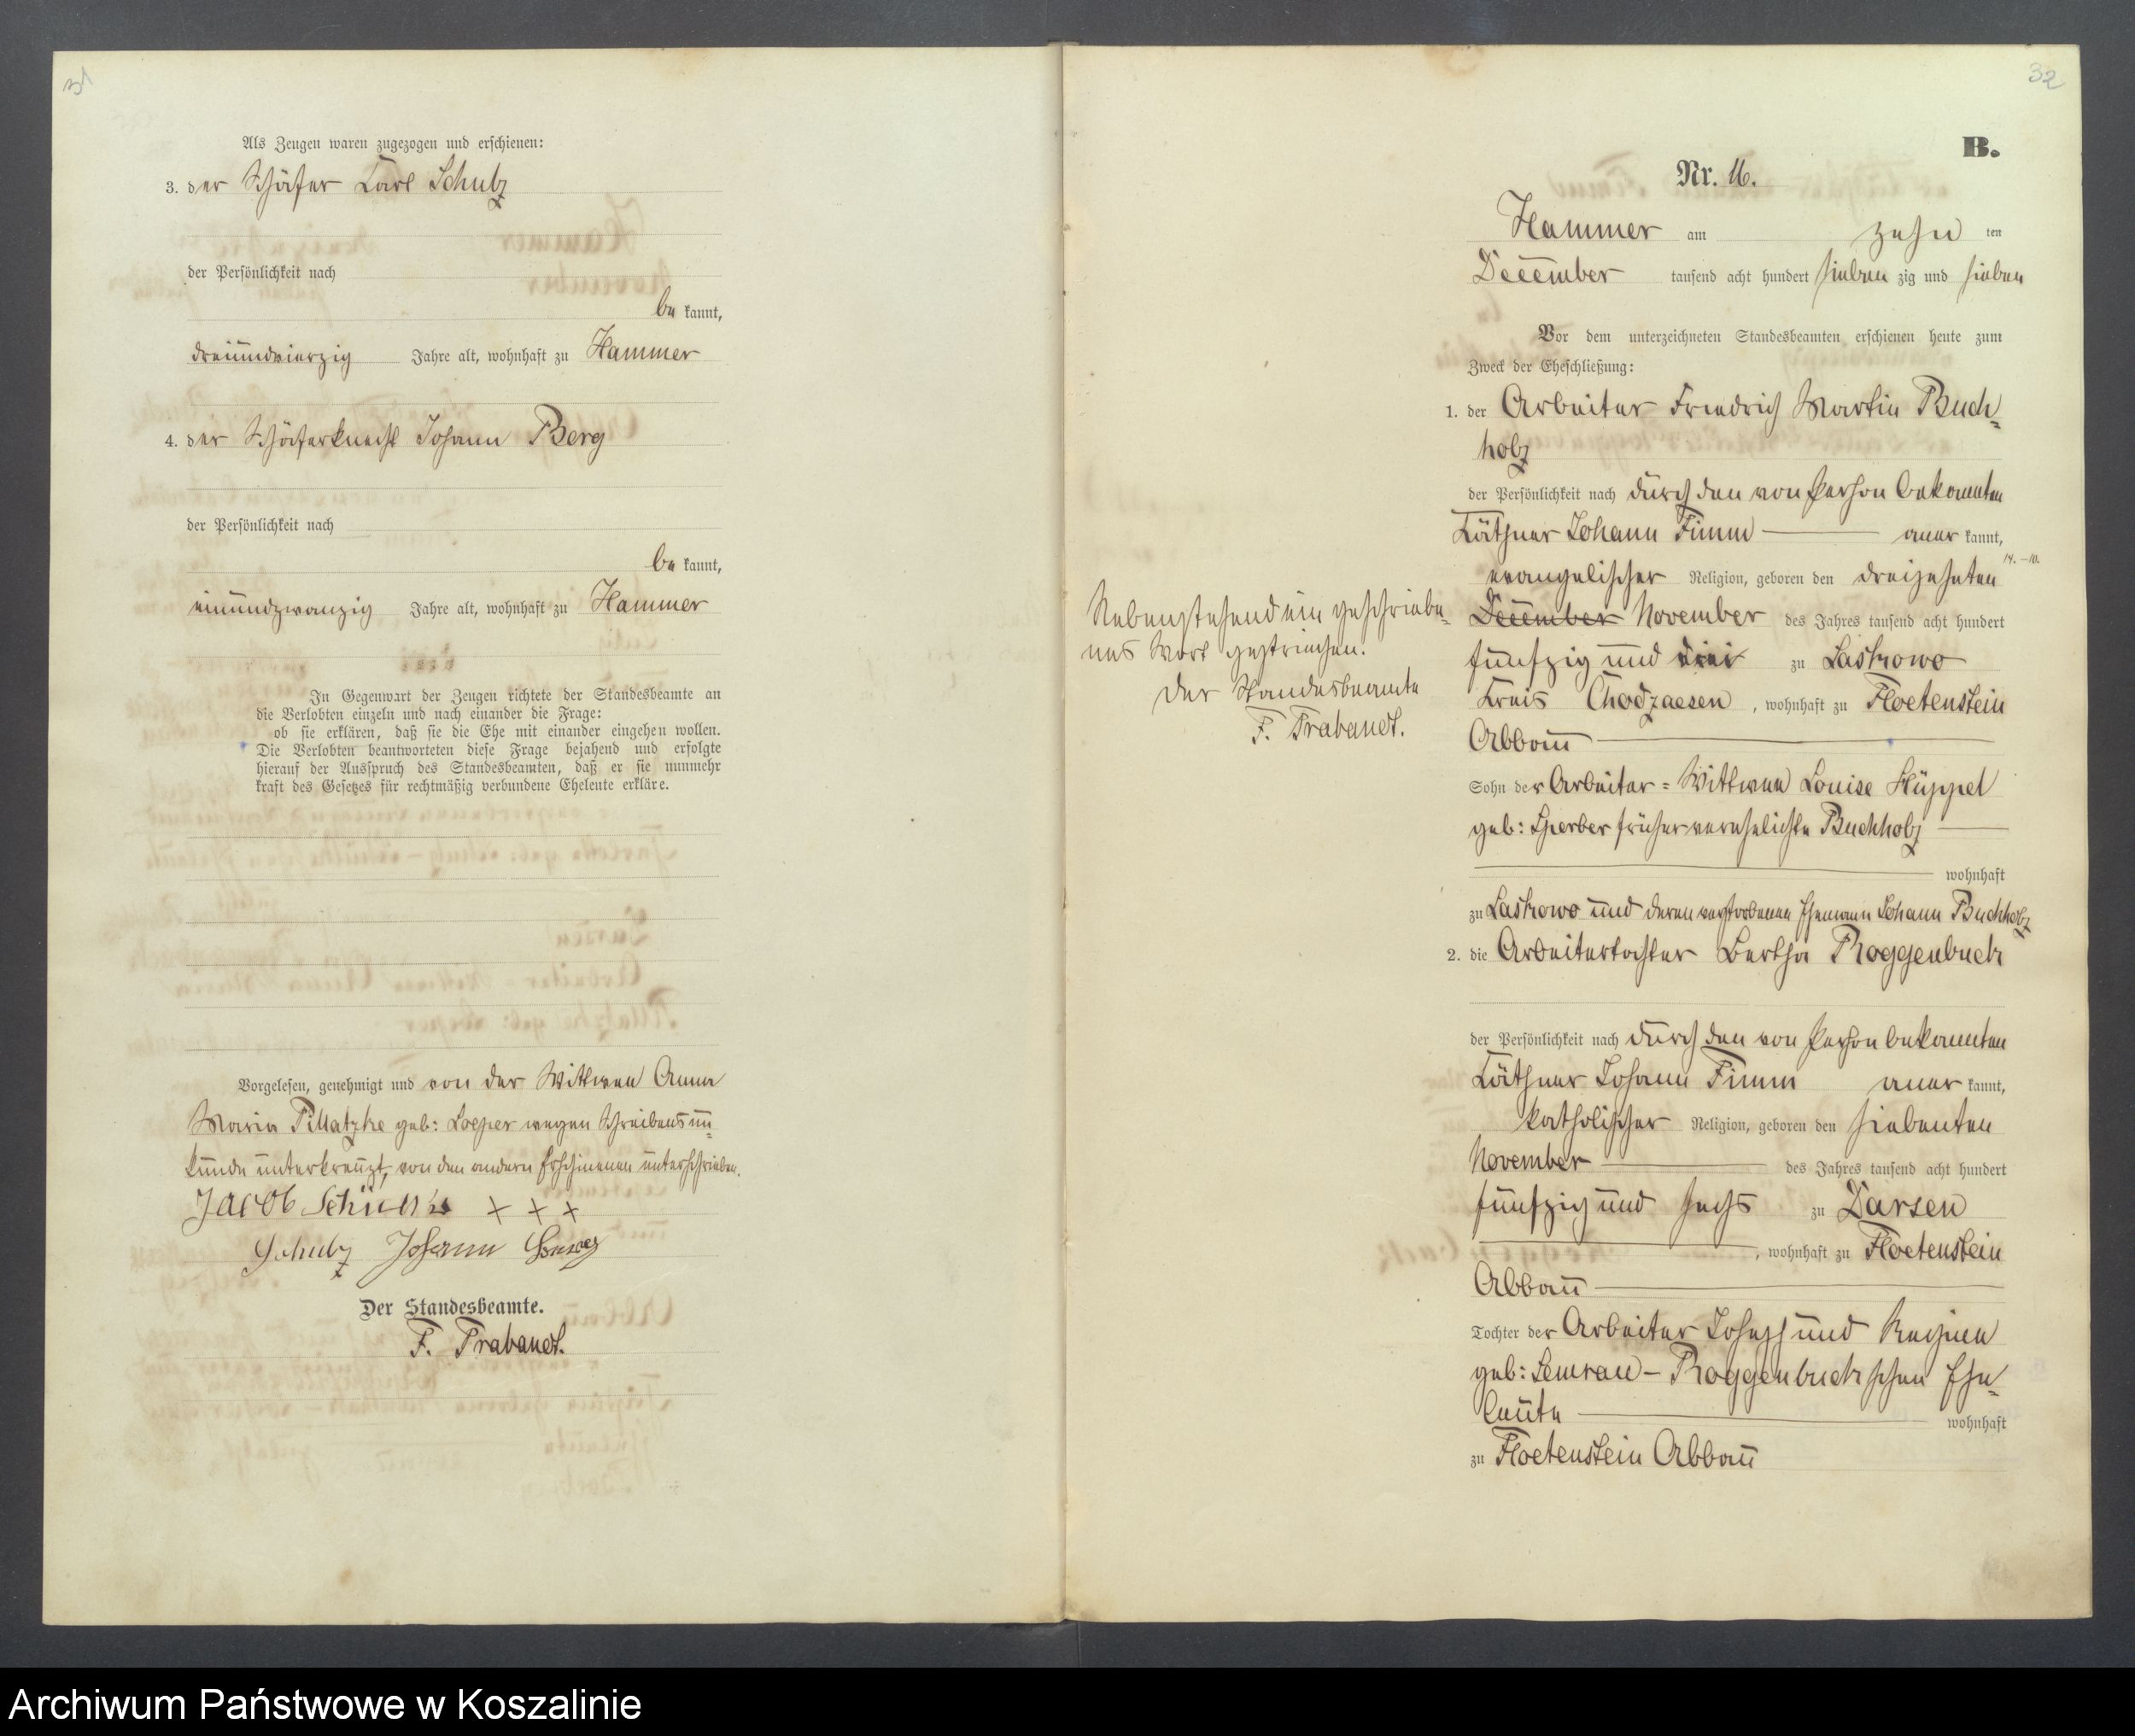 31
Als Zeugen waren zugezogen und erschienen:
3. der Schäfer Carl Schulz
der Persönlichkeit nach
be kannt,
dreiundvierzig Jahre alt, wohnhaft zu Hammer
4. der Schäferknecht Johann Berg
der Persönlichkeit nach
be kannt,
einundzwanzig Jahre alt, wohnhaft zu Hammer
In Gegenwart der Zeugen richtete der Standesbeamte an
die Verlobten einzeln und nach einander die Frage:
ob sie erklären, daß sie die Ehe mit einander eingehen wollen.
Die Verlobten beantworteten diese Frage bejahend und erfolgte
hierauf der Ausspruch des Standesbeamten, daß er sie nunmehr
kraft des Gesetzes für rechtmäßig verbundene Eheleute erkläre.
Vorgelesen, genehmigt und von der Wittwe Anna
Maria Pillatzke geb: Loeper wegen Schreibensun=
kunde unterkreuzt, von den andern Erschienenen unterschrieben.
Jacob + + +
Schulz Johann
Der Standesbeamte.
F. Trabandt.
32
B.
Nr. 16.
Hammer am zehn ten
December tausend acht hundert sieben zig und sieben
Vor dem unterzeichneten Standesbeamten erschienen heute zum
Zweck der Eheschließung:
1. der Arbeiter Friedrich Martin Buch=
holz
der Persönlichkeit nach durch den von Person bekannten
Käthner Johann Timm aner kannt,
14. – 10.
evangelischer Religion, geboren den dreizehnten
December November des Jahres tausend acht hundert
fünfzig und drei zu Lastrowo
Kreis Chodzaesen, wohnhaft zu Floetenstein
Abbau
Sohn der Arbeiter=Wittwe Louise Hüppel
geb: Sperber früher verehelichte Buchholz
wohnhaft
zu Lastrowo und deren verstorbenen Ehemann Johann Buchholz
2. die Arbeitertochter Bertha Roggenbuck
der Persönlichkeit nach durch den von Person bekannten
Käthner Johann Timm aner kannt,
katholischer Religion, geboren den siebenten
November des Jahres tausend acht hundert
fünfzig und sechs zu Darsen
, wohnhaft zu Floetenstein
Abbau
Tochter der Arbeiter Joseph und Regine
geb: Semrau – Roggenbuckschen Ehe=
leute wohnhaft
zu Floetenstein Abbau
Nebenstehend ein geschriebe=
nes Wort gestrichen.
Der Standesbeamte
F. Trabandt.
Archiwum Państwowe w Koszalinie